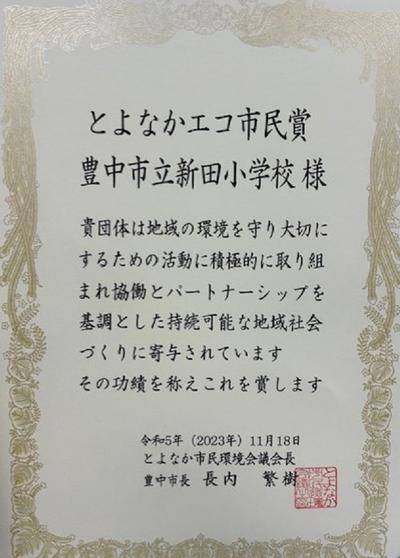 とよなかエコ市民賞
豊中市立新田小学校 様
貴団体は地域の環境を守り大切に
するための活動に積極的に取り組
まれ協働とパートナーシップを
基調とした持続可能な地域社会
づくりに寄与されています
その功績を称えこれを賞します
令和5年（2023年）11月18日
とよなか市民環境会議会長
豊中市長 長内 繁樹